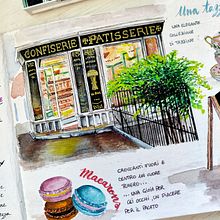 Una taz
UNA ELEGANTE
COLLEZIONE
DI TAZZINE
CONFISERIE PATISSERIE
Macarons
CROCCANTI FUORI E
DENTRO UN CUORE
TENERO...
... UNA GIOIA PER
GLI OCCHI, UN PIACERE
PER IL PALATO